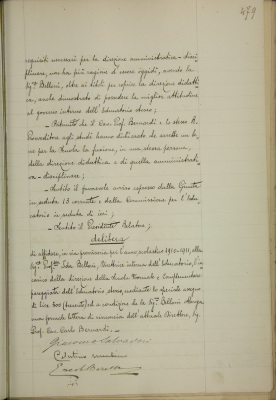 479
requisiti necessari per la direzione amministrativa-disci-
plinare, non ha più ragione di essere oggidì, avendo la
Sig.ra Belloni, oltre ai titoli per coprire la direzione didatti-
ca, anche dimostrato di possedere le migliori attitudini
al governo interno dell'Educatorio stesso;
- che il Cav. Prof. Bernardi e lo stesso R.
Provveditore agli studi hanno dichiarato che sarebbe un be-
ne per la Scuola la fusione, in una stessa persona,
della direzione didattica e di quella amministrati-
va-disciplinare;
- Sentito il parere espresso dalla Giunta
in seduta 13 corrente e dalla Commissione per l'Edu-
catorio in seduta di ieri;
- Sentito il Presidente Relatore;
delibera
di affidare, in via provvisoria per l'anno scolastico 1910-1911, alla
Sig.ra Prof.ssa Ida Belloni, Direttrice interna dell'Educatorio, l'in-
carico della direzione della Scuola Normale e Complementare
pareggiata dell'Educatorio stesso, mediante lo speciale assegno
di lire 300 (trecento) ed a condizione che la Sig.ra Belloni
una formale lettera di rinuncia dell'attuale Direttore, Sig.
Prof. Cav. Carlo Bernardi.
Giacomo
Celestino